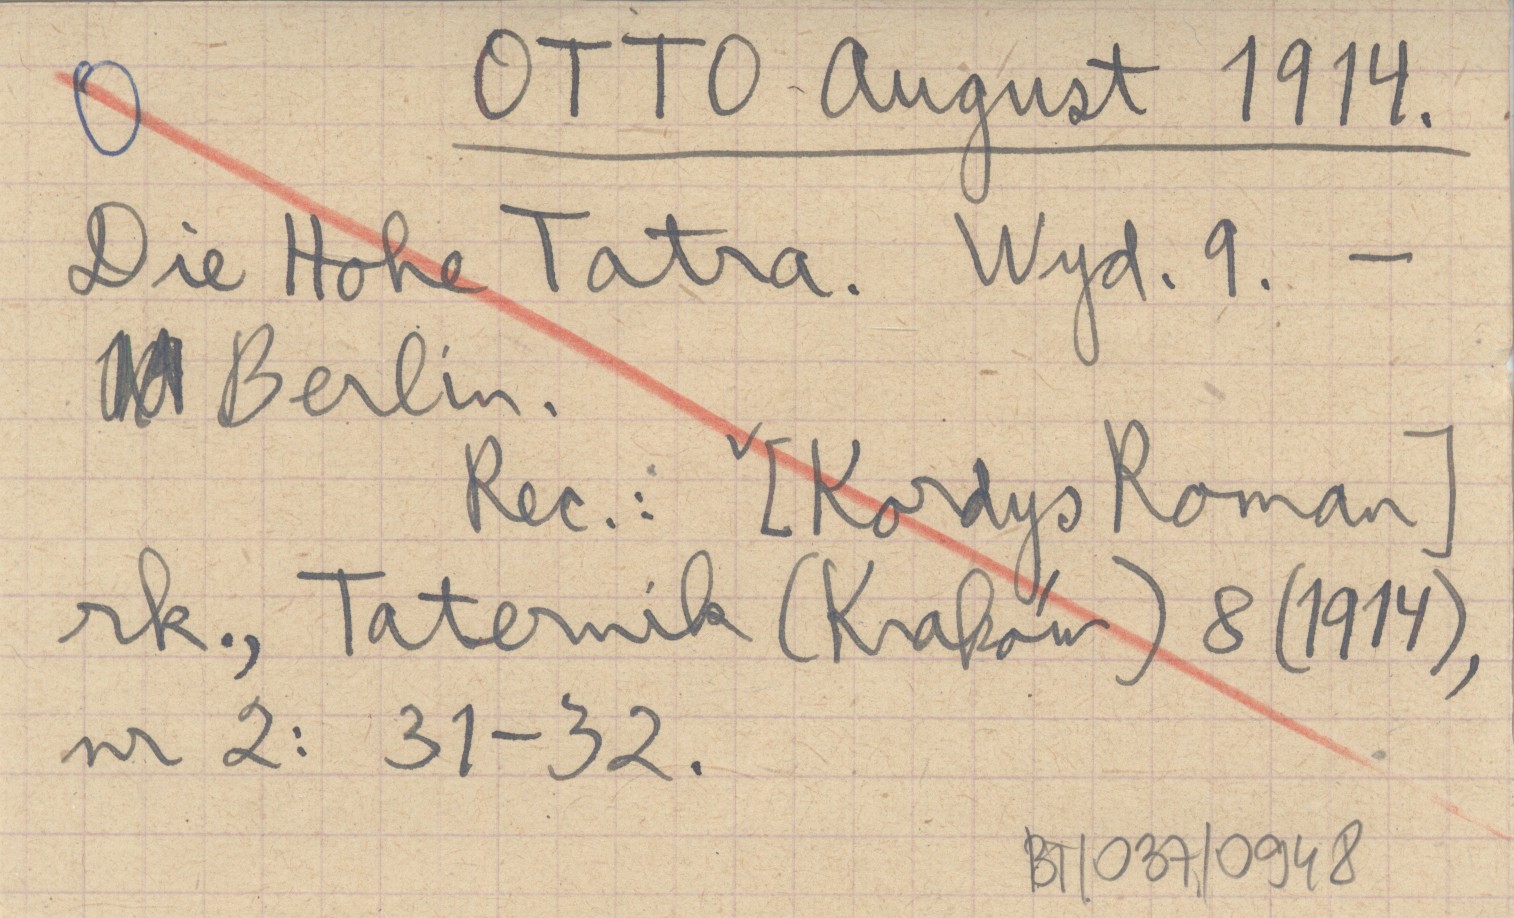 O
OTTO August 1914.
Die Hohe Tatra. Wyd. 9. —
Berlin.
Rec.: ✓[Kordys Roman]
rk., Taternik (Kraków) 8 (1914),
nr 2: 31-32.
BT/037/0948